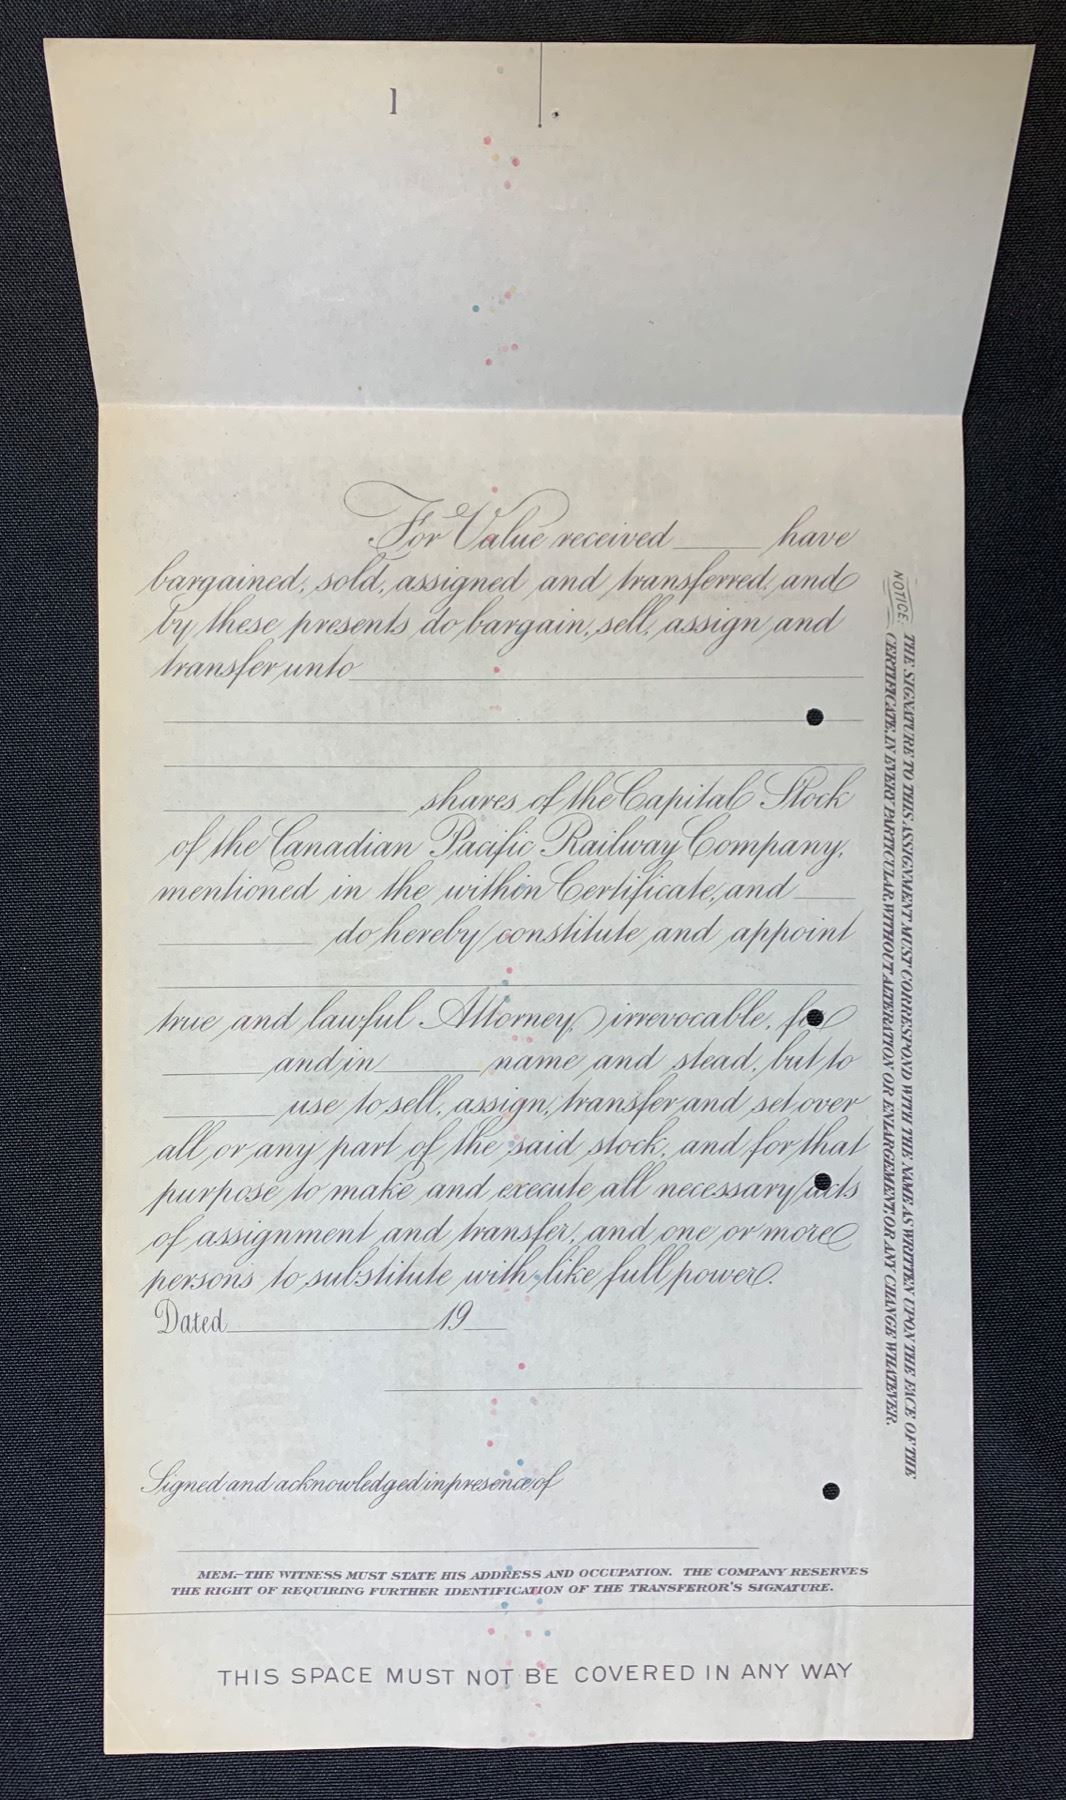 1
For Value received ____ have
bargained, sold, assigned and transferred, and
by these presents do bargain, sell, assign and
transfer unto
shares of the Capital Stock
of the Canadian Pacific Railway Company,
mentioned in the within Certificate, and ____
____ do hereby constitute and appoint
true and lawful Attorney, irrevocable, for
____ and in ____ name and stead, but to
____ use to sell, assign, transfer and set over
all or any part of the said stock, and for that
purpose to make and execute all necessary acts
of assignment and transfer, and one or more
persons to substitute with like full power.
Dated ____ 19__
Signed and acknowledged in presence of
MEM.—THE WITNESS MUST STATE HIS ADDRESS AND OCCUPATION. THE COMPANY RESERVES
THE RIGHT OF REQUIRING FURTHER IDENTIFICATION OF THE TRANSFEROR'S SIGNATURE.
THIS SPACE MUST NOT BE COVERED IN ANY WAY
NOTICE: THE SIGNATURE TO THIS ASSIGNMENT MUST CORRESPOND WITH THE NAME AS WRITTEN UPON THE FACE OF THE
CERTIFICATE, IN EVERY PARTICULAR, WITHOUT ALTERATION OR ENLARGEMENT, OR ANY CHANGE WHATEVER.